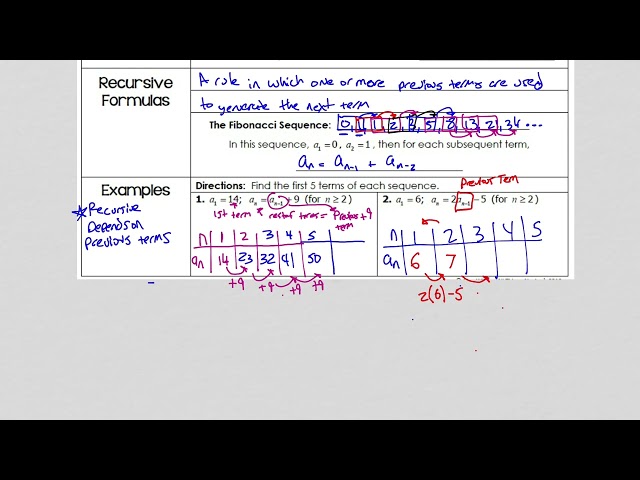 Recursive Formulas
A rule in which one or more previous terms are used
to generate the next term
The Fibonacci Sequence: 0, 1, 1, 2, 3, 5, 8, 13, 21, 34 ...
In this sequence, a₁ = 0, a₂ = 1, then for each subsequent term,
aₙ = aₙ₋₁ + aₙ₋₂
Examples
* Recursive
Depends on
Previous terms
Directions: Find the first 5 terms of each sequence.
1. a₁ = 14; aₙ = aₙ₋₁ + 9 (for n ≥ 2)
1st term
rest of terms = Previous + 9
term
n 1 2 3 4 5
aₙ 14 23 32 41 50
+9 +9 +9 +9
Previous Term
2. a₁ = 6; aₙ = 2aₙ₋₁ − 5 (for n ≥ 2)
n 1 2 3 4 5
aₙ 6 7
2(6)-5